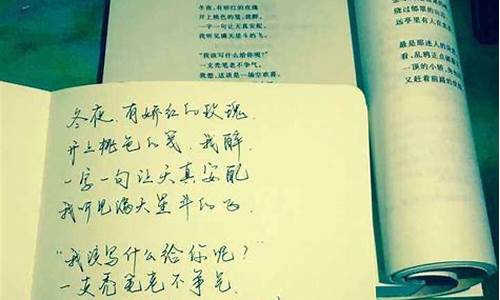 冬夜，有娇红的玫瑰
开上桃色的笺，我醉，
一字一句让天真安配，
我听见满天星斗的飞。
“我该写什么给你呢？”
一支秃笔老不争气，
我想，这该是一场空欢喜，
绕过郁郁的山
远亭里有人在
最是那迷人的
看，乱鸦正点破
一顶的小轿，
又赶着前路的
冬夜，有娇红的玫瑰.
开上桃色的笺，我醉.
一字一句让天真安配
我听见满天星斗的飞.
“我该写什么给你呢？”
一支秃笔老不争气.